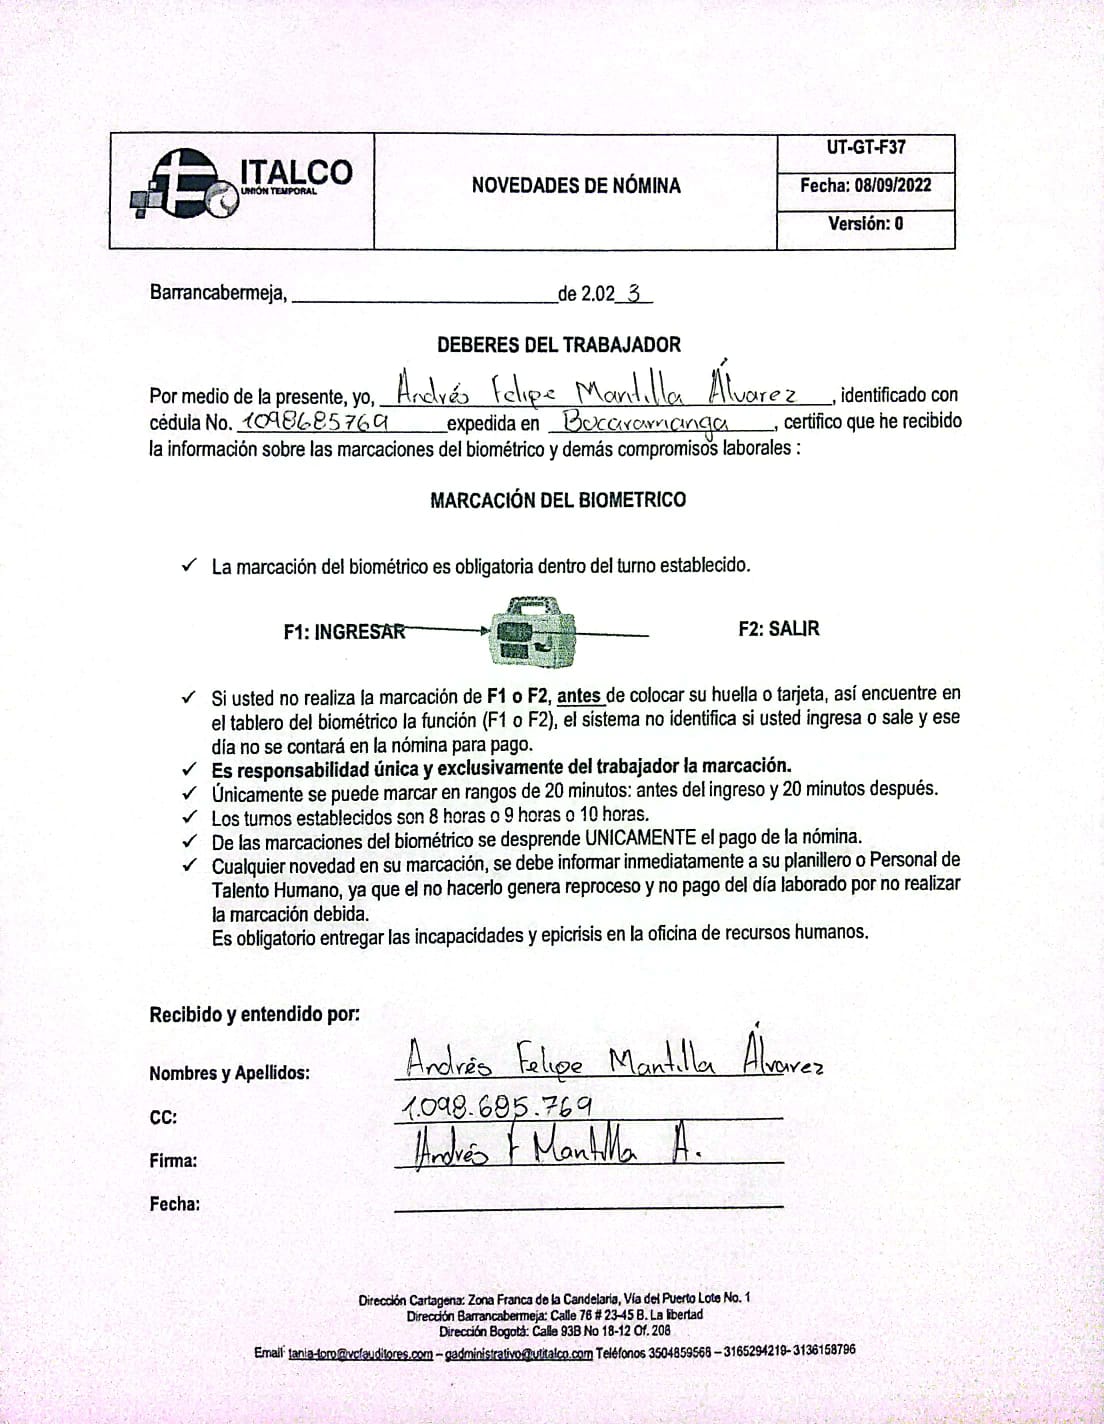 ITALCO
UNIÓN TEMPORAL
NOVEDADES DE NÓMINA
UT-GT-F37
Fecha: 08/09/2022
Versión: 0
Barrancabermeja, ____________________ de 2.02 3
DEBERES DEL TRABAJADOR
Por medio de la presente, yo, Andrés Felipe Mantilla Álvarez, identificado con
cédula No. 1098685769 expedida en Bucaramanga, certifico que he recibido
la información sobre las marcaciones del biométrico y demás compromisos laborales :
MARCACIÓN DEL BIOMETRICO
✓ La marcación del biométrico es obligatoria dentro del turno establecido.
F1: INGRESAR F2: SALIR
✓ Si usted no realiza la marcación de F1 o F2, antes de colocar su huella o tarjeta, así encuentre en
el tablero del biométrico la función (F1 o F2), el sistema no identifica si usted ingresa o sale y ese
día no se contará en la nómina para pago.
✓ Es responsabilidad única y exclusivamente del trabajador la marcación.
✓ Únicamente se puede marcar en rangos de 20 minutos: antes del ingreso y 20 minutos después.
✓ Los turnos establecidos son 8 horas o 9 horas o 10 horas.
✓ De las marcaciones del biométrico se desprende UNICAMENTE el pago de la nómina.
✓ Cualquier novedad en su marcación, se debe informar inmediatamente a su planillero o Personal de
Talento Humano, ya que el no hacerlo genera reproceso y no pago del día laborado por no realizar
la marcación debida.
Es obligatorio entregar las incapacidades y epicrisis en la oficina de recursos humanos.
Recibido y entendido por:
Nombres y Apellidos: Andrés Felipe Mantilla Álvarez
CC: 1.098.685.769
Firma: Andrés F Mantilla A.
Fecha:
Dirección Cartagena: Zona Franca de la Candelaria, Vía del Puerto Lote No. 1
Dirección Barrancabermeja: Calle 76 # 23-45 B. La libertad
Dirección Bogotá: Calle 93B No 18-12 Of. 206
Email: tania-toro@vcfauditores.com – gadministrativo@utitalco.com Teléfonos 3504859568 – 3165294219- 3136158796